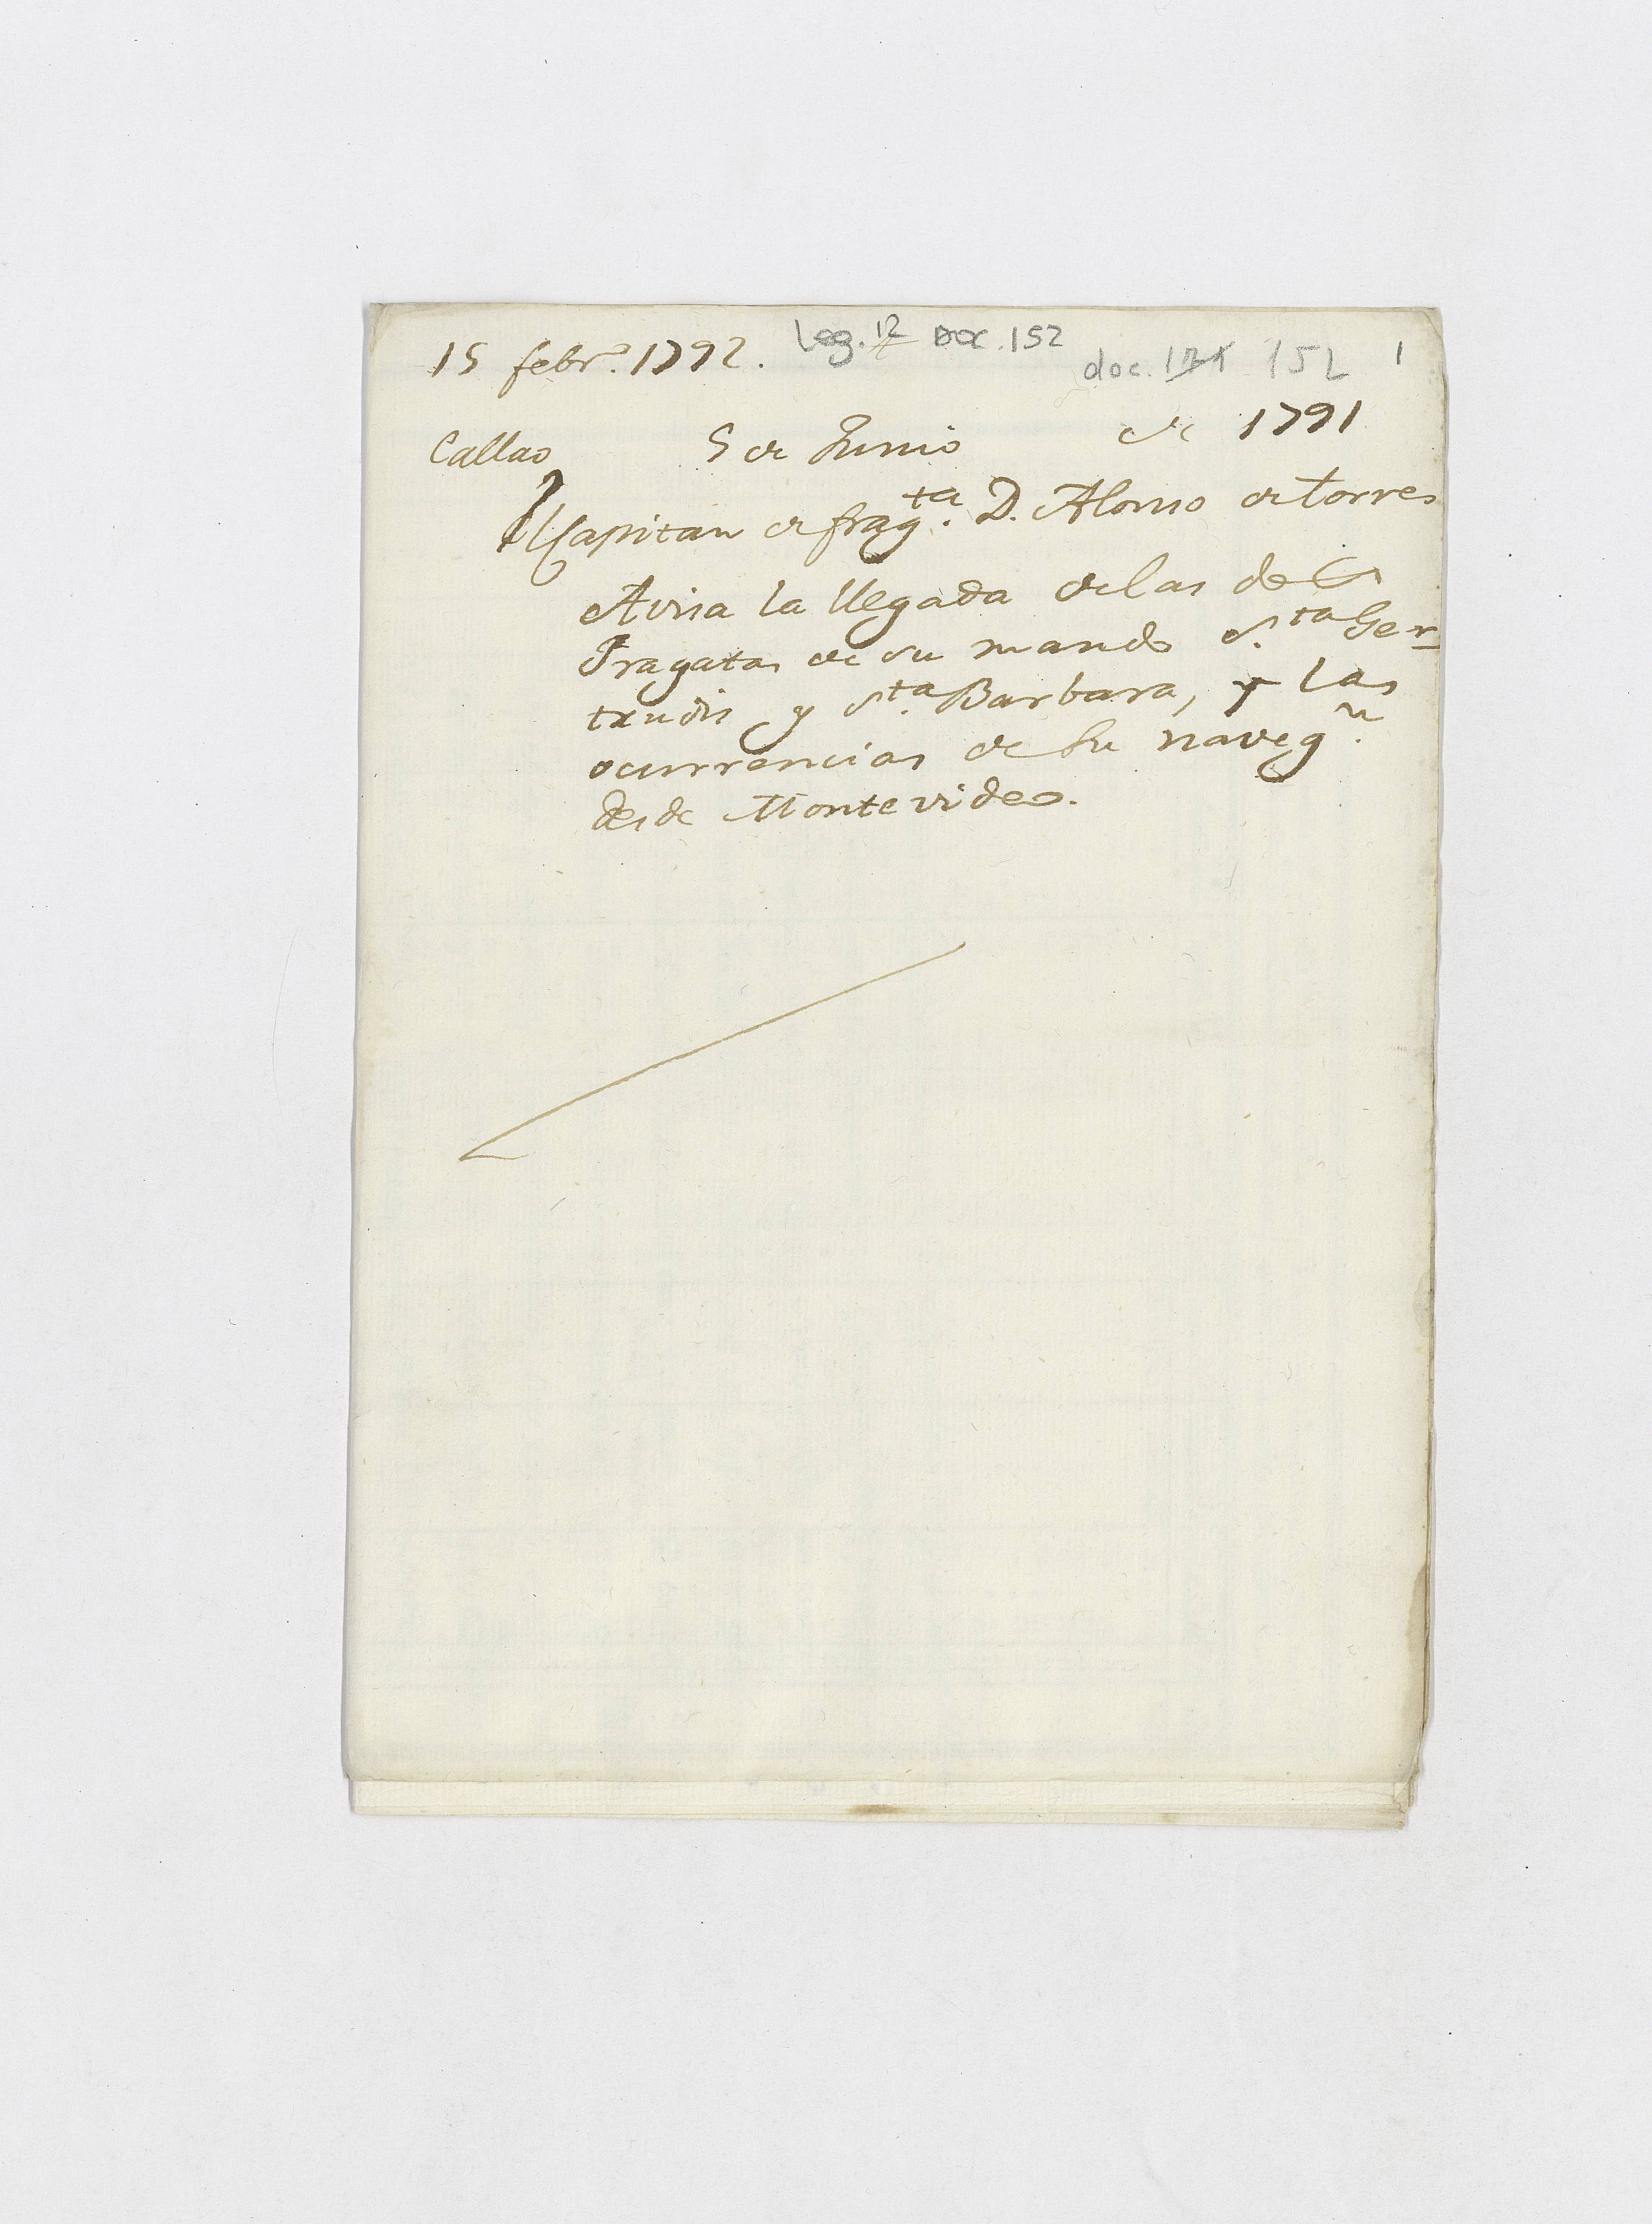 15 febr.º 1792. Leg. 12 Doc. 152
doc. 152 1
Callao 5 de Junio de 1791
El Capitan de frag.ta D. Alonso de Torres
Avisa la llegada de las de
Fragatas de su mando S.ta Ger-
trudis y S.ta Barbara, y las
ocurrencias de su naveg.n
desde Montevideo.